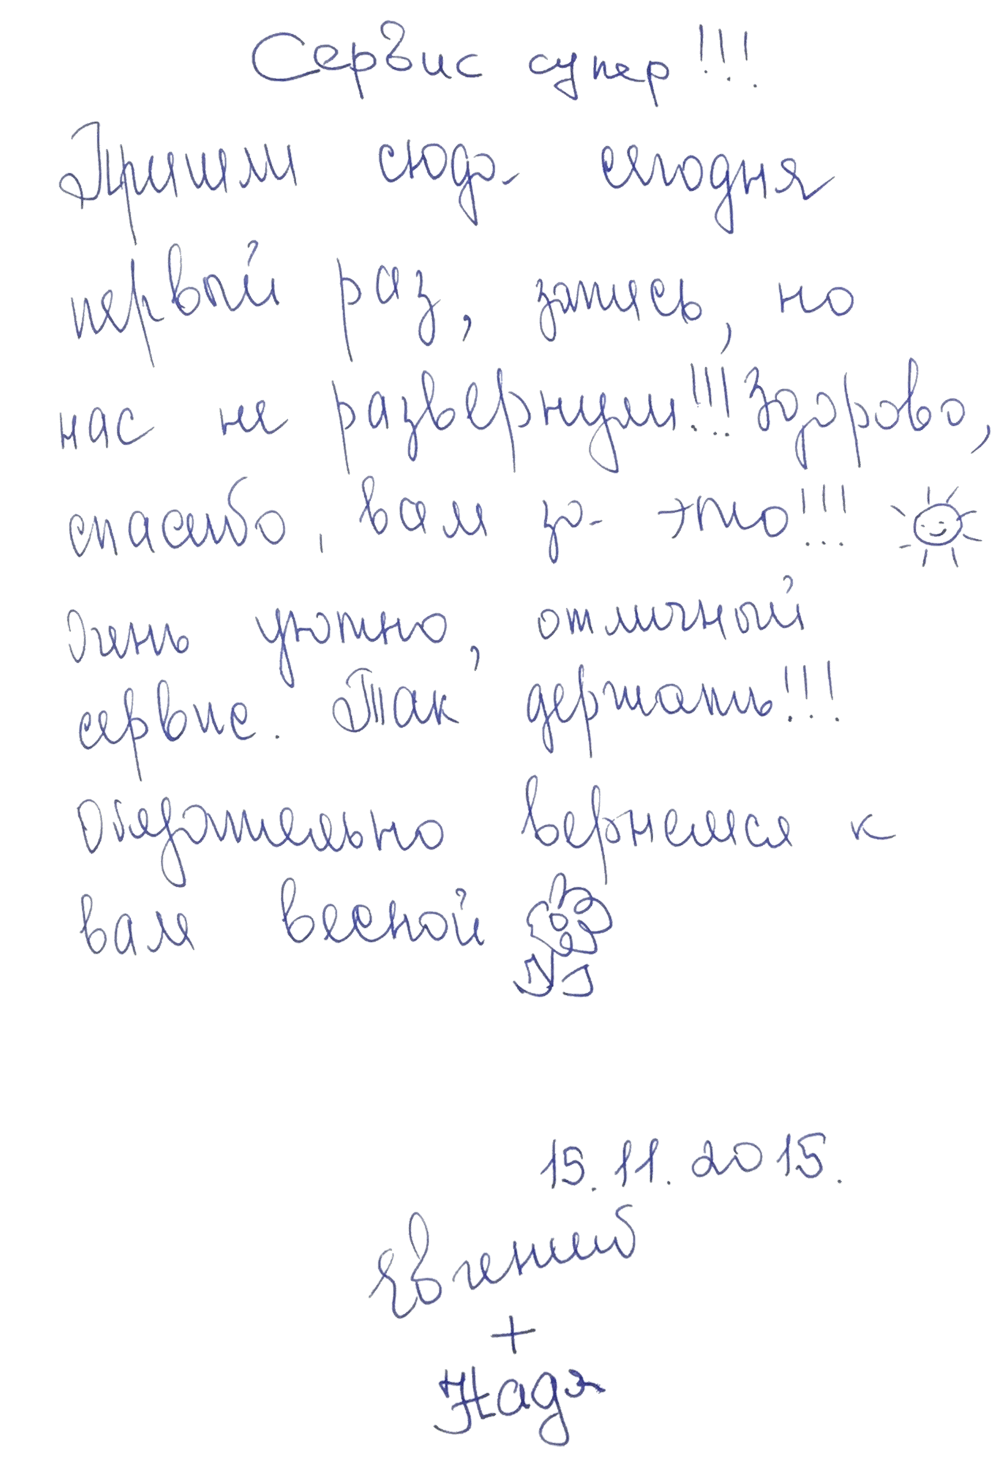 Сервис супер!!!
Пришли сюда сегодня
первый раз, запись, но
нас не развернули!!! Здорово,
спасибо, вам за это!!!
Очень уютно, отличный
сервис. Так держать!!!
Обязательно вернемся к
вам весной
15.11.2015.
Евгений
+
Надя